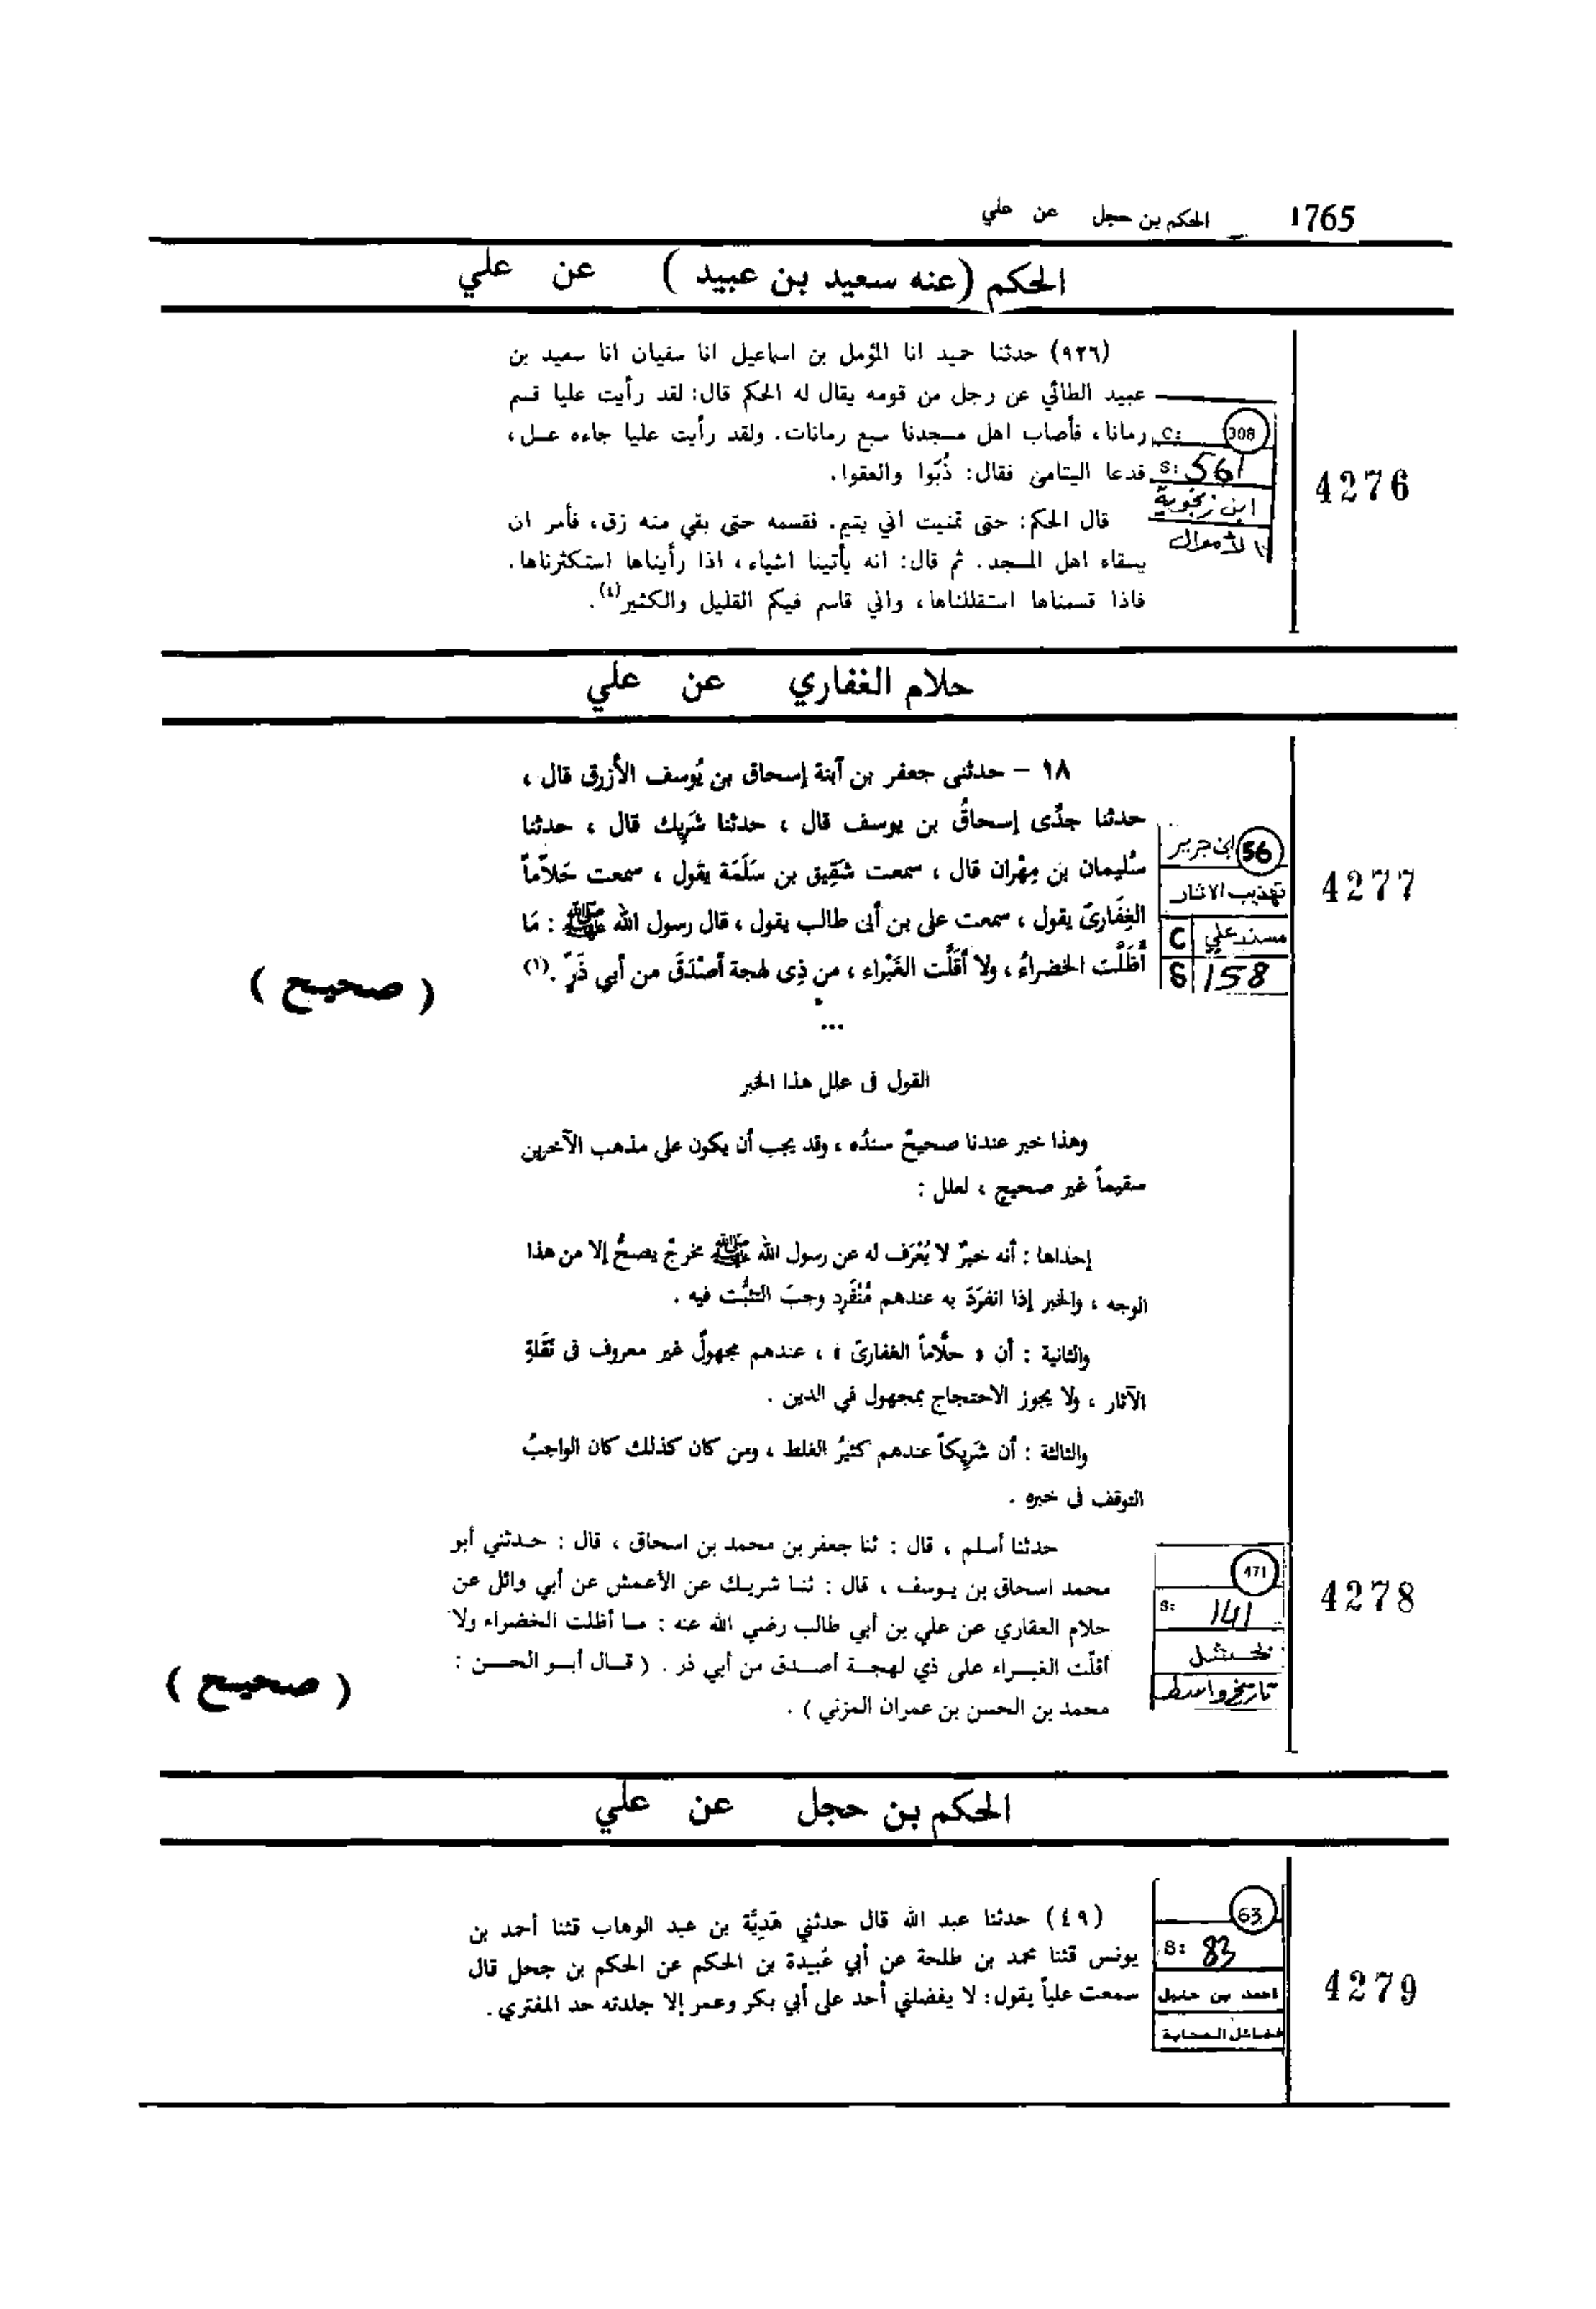 1765 الحكم بن حجل عن علي
الحكم (عنه سعيد بن عبيد) عن علي
(٩٢٦) حدثنا حميد انا المؤمل بن اسماعيل انا سفيان انا سعيد بن
عبيد الطائي عن رجل من قومه يقال له الحكم قال: لقد رأيت عليا قسم
رمانا، فأصاب اهل مسجدنا سبع رمانات. ولقد رأيت عليا جاءه عسل،
فدعا اليتامى فقال: ذُبّوا والعقوا.
قال الحكم: حتى تمنيت اني يتيم. فقسمه حتى بقي منه زق، فأمر ان
يسقاه اهل المسجد. ثم قال: انه يأتينا اشياء، اذا رأيناها استكثرناها.
فاذا قسمناها استقللناها، واني قاسم فيكم القليل والكثير(٤).
308
C:
S: 561
ابن زنجوية
الأموال
4276
حلام الغفاري عن علي
١٨ – حدثنى جعفر بن آبنة إسحاق بن يُوسف الأزرق قال ،
حدثنا جدِّى إسحاقُ بن يوسف قال ، حدثنا شَرِيك قال ، حدثنا
سُليمان بن مِهْران قال ، سمعت شَقِيق بن سَلَمَة يقول ، سمعت حَلاَّماً
الغِفَارىّ يقول ، سمعت على بن أبى طالب يقول ، قال رسول الله ﷺ : مَا
أَظَلَّت الخضراءُ ، ولا أَقَلَّت الغَبْراء ، من ذِى لهجة أصْدَقَ من أبي ذَرٍّ .(١)
( صحيح )
56
ابن جرير
تهذيب الاثار
مسند علي
C
S 158
4277
...
القول فى علل هذا الخبر
وهذا خبر عندنا صحيحٌ سندُه ، وقد يجب أن يكون على مذهب الآخرين
سقيماً غير صحيحٍ ، لعلل :
إحداها : أنه خبرٌ لا يُعْرَف له عن رسول الله ﷺ مخرجٌ يصحُّ إلا من هذا
الوجه ، والخبر إذا انفرَدَ به عندهم مُنْفَرِد وجبَ التثبُّت فيه .
والثانية : أن « حلَّاماً الغفارىّ » ، عندهم مجهولٌ غير معروف فى نَقَلةِ
الآثار ، ولا يجوز الاحتجاج بمجهول في الدين .
والثالثة : أن شَرِيكاً عندهم كثيرُ الغلط ، ومن كان كذلك كان الواجبُ
التوقف فى خبره .
حدثنا أسلم ، قال : ثنا جعفر بن محمد بن اسحاق ، قال : حدثني أبو
محمد اسحاق بن يوسف ، قال : ثنا شريك عن الأعمش عن أبي وائل عن
حلام العقاري عن علي بن أبي طالب رضي الله عنه : ما أظلت الخضراء ولا
أقلّت الغبراء على ذي لهجة أصدق من أبي ذر . ( قال أبو الحسن :
محمد بن الحسن بن عمران المزني ) .
( صحيح )
471
S: 141
بحشل
تاريخ واسط
4278
الحكم بن حجل عن علي
(٤٩) حدثنا عبد الله قال حدثني هَدِيَّة بن عبد الوهاب قثنا أحمد بن
يونس قثنا محمد بن طلحة عن أبي عُبيدة بن الحكم عن الحكم بن جحل قال
سمعت علياً يقول: لا يفضلني أحد على أبي بكر وعمر إلا جلدته حد المفتري.
63
S: 83
احمد بن حنبل
فضائل الصحابة
4279